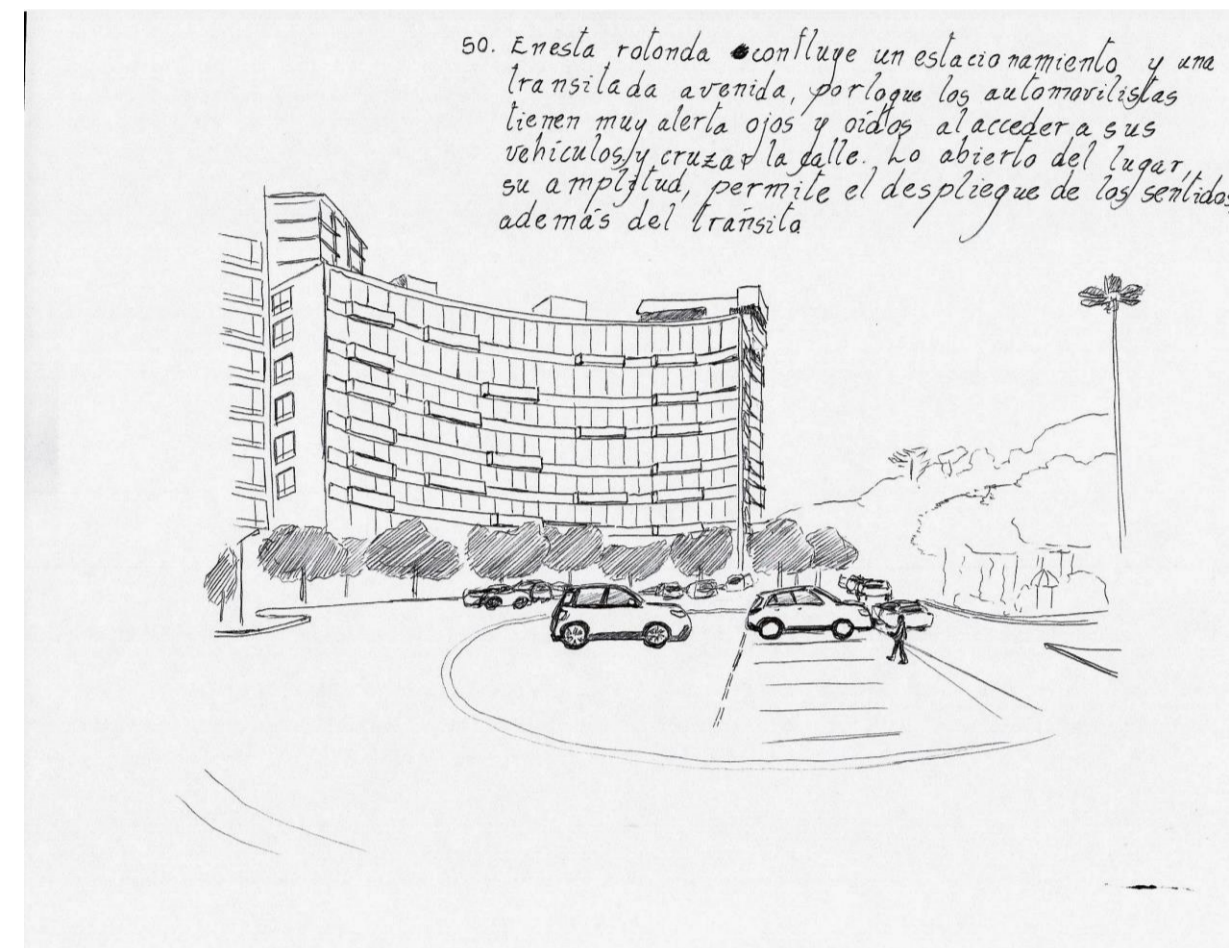 50. En esta rotonda confluye un estacionamiento y una
transitada avenida, por lo que los automovilistas
tienen muy alerta ojos y oídos al acceder a sus
vehículos y cruzar la calle. Lo abierto del lugar,
su amplitud, permite el despliegue de los sentidos
además del tránsito